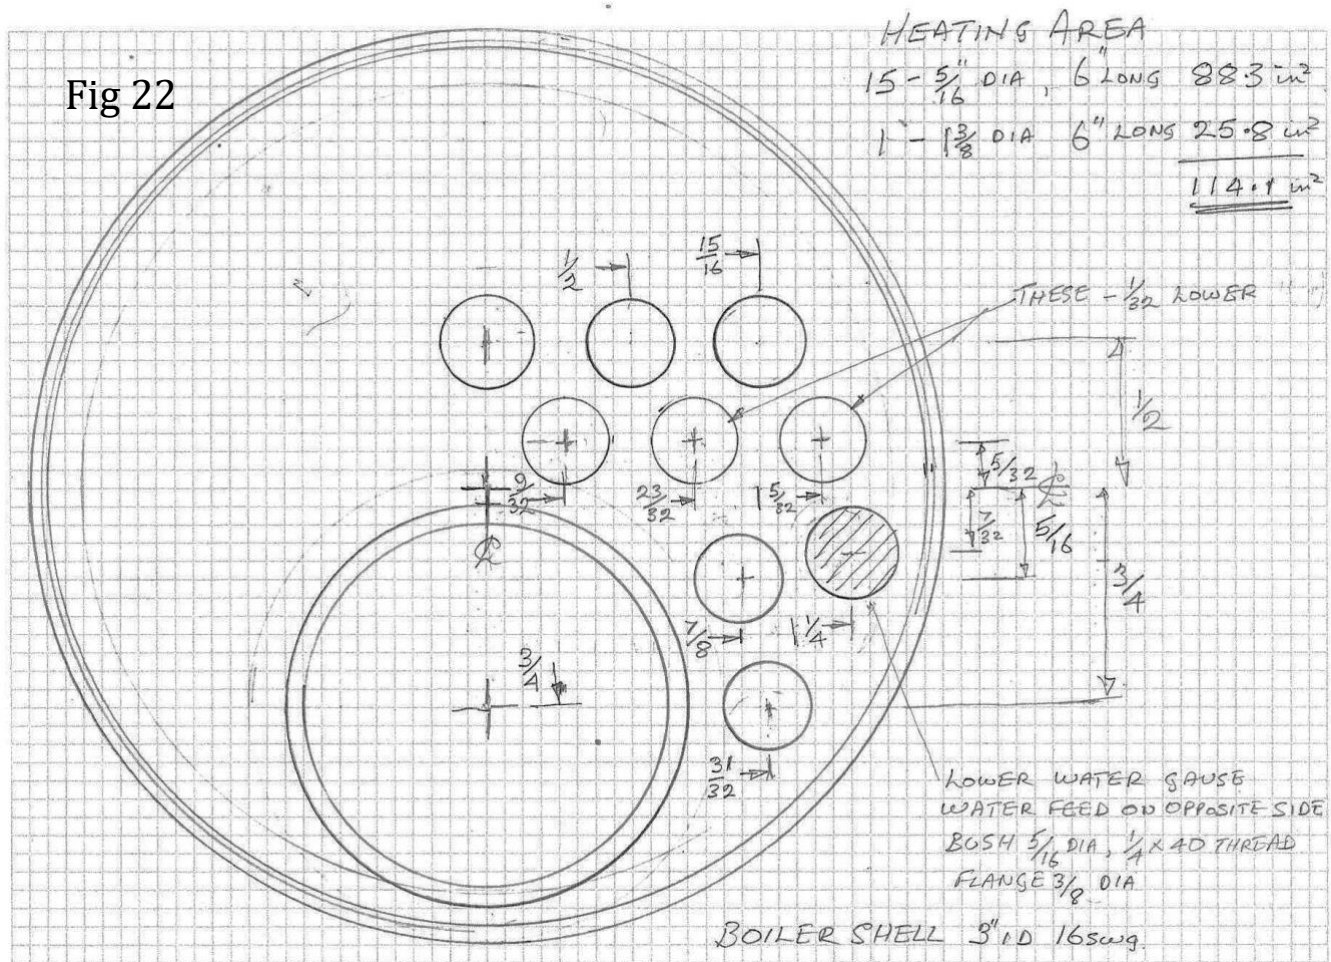 HEATING AREA
Fig 22
15 - 5/16" DIA, 6" LONG 88.3 in²
1 - 1 3/8 DIA 6" LONG 25.8 in²
114.1 in²
1/2
15/16
THESE - 1/32 LOWER
1/2
9/32
23/32
1 5/32
5/32
℄
7/32
5/16
℄
7/8
1 1/4
3/4
3/4
31/32
LOWER WATER GAUGE
WATER FEED ON OPPOSITE SIDE
BUSH 5/16 DIA, 1/4 x 40 THREAD
FLANGE 3/8 DIA
BOILER SHELL 3" ID 16swg.